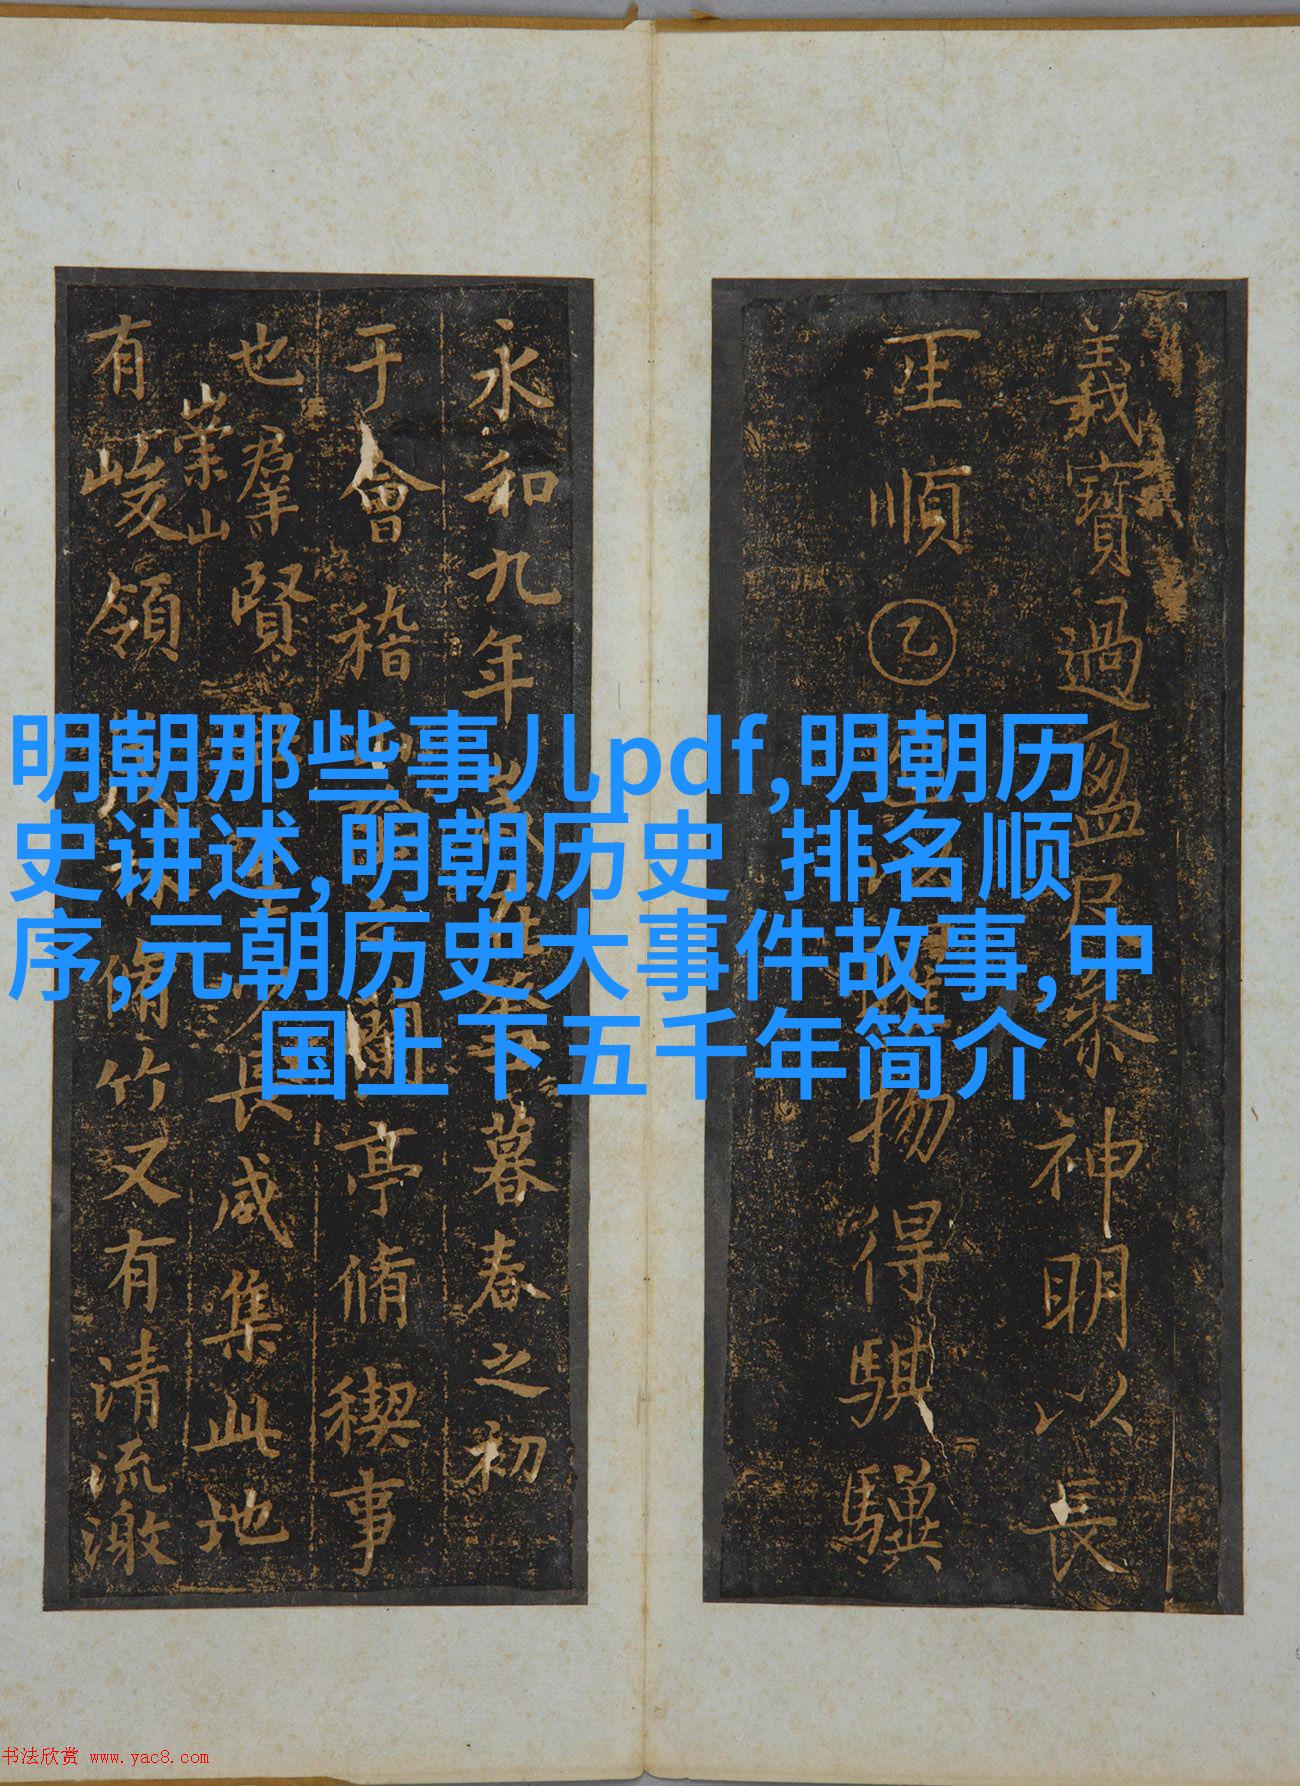 明朝那些事儿pdf,明朝历
史讲述,明朝历史 排名顺
序,元朝历史大事件故事,中
国上下五千年简介
義寶過盈 神明以長
王順乙 物得騏驥
永和九年 暮春之初
于會稽 蘭亭脩禊事
也羣賢 長咸集此地
崇山
有峻領 脩竹又有清流激
书法欣赏 www.yac8.com